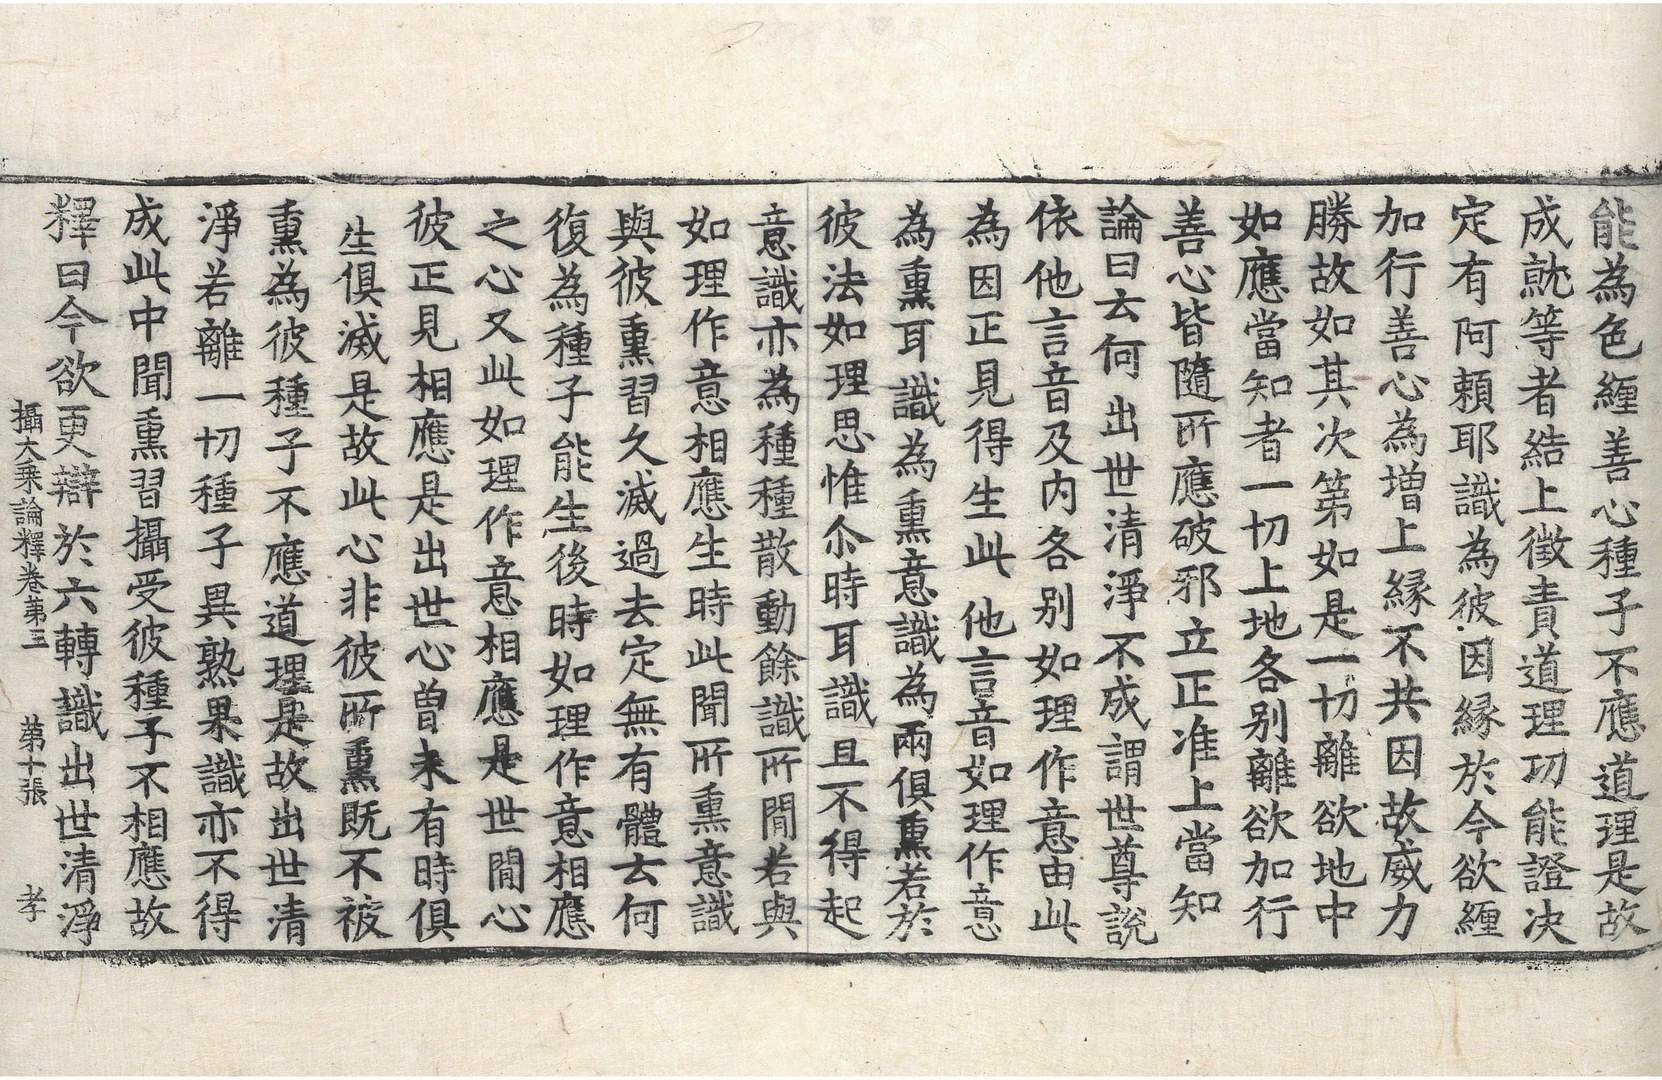 能為色纏善心種子不應道理是故
成就等者結上徵責道理功能證決
定有阿賴耶識為彼因緣於今欲纏
加行善心為增上緣不共因故威力
勝故如其次第如是一切離欲地中
如應當知者一切上地各別離欲加行
善心皆隨所應破邪立正准上當知
論曰云何出世清淨不成謂世尊說
依他言音及內各別如理作意由此
為因正見得生此他言音如理作意
為熏耳識為熏意識為兩俱熏若於
彼法如理思惟尒時耳識且不得起
意識亦為種種散動餘識所間若與
如理作意相應生時此聞所熏意識
與彼熏習久滅過去定無有體云何
復為種子能生後時如理作意相應
之心又此如理作意相應是世間心
彼正見相應是出世心曾未有時俱
生俱滅是故此心非彼所熏既不被
熏為彼種子不應道理是故出世清
淨若離一切種子異熟果識亦不得
成此中聞熏習攝受彼種子不相應故
釋曰今欲更辯於六轉識出世清淨
攝大乘論釋卷第三 第十張 孝